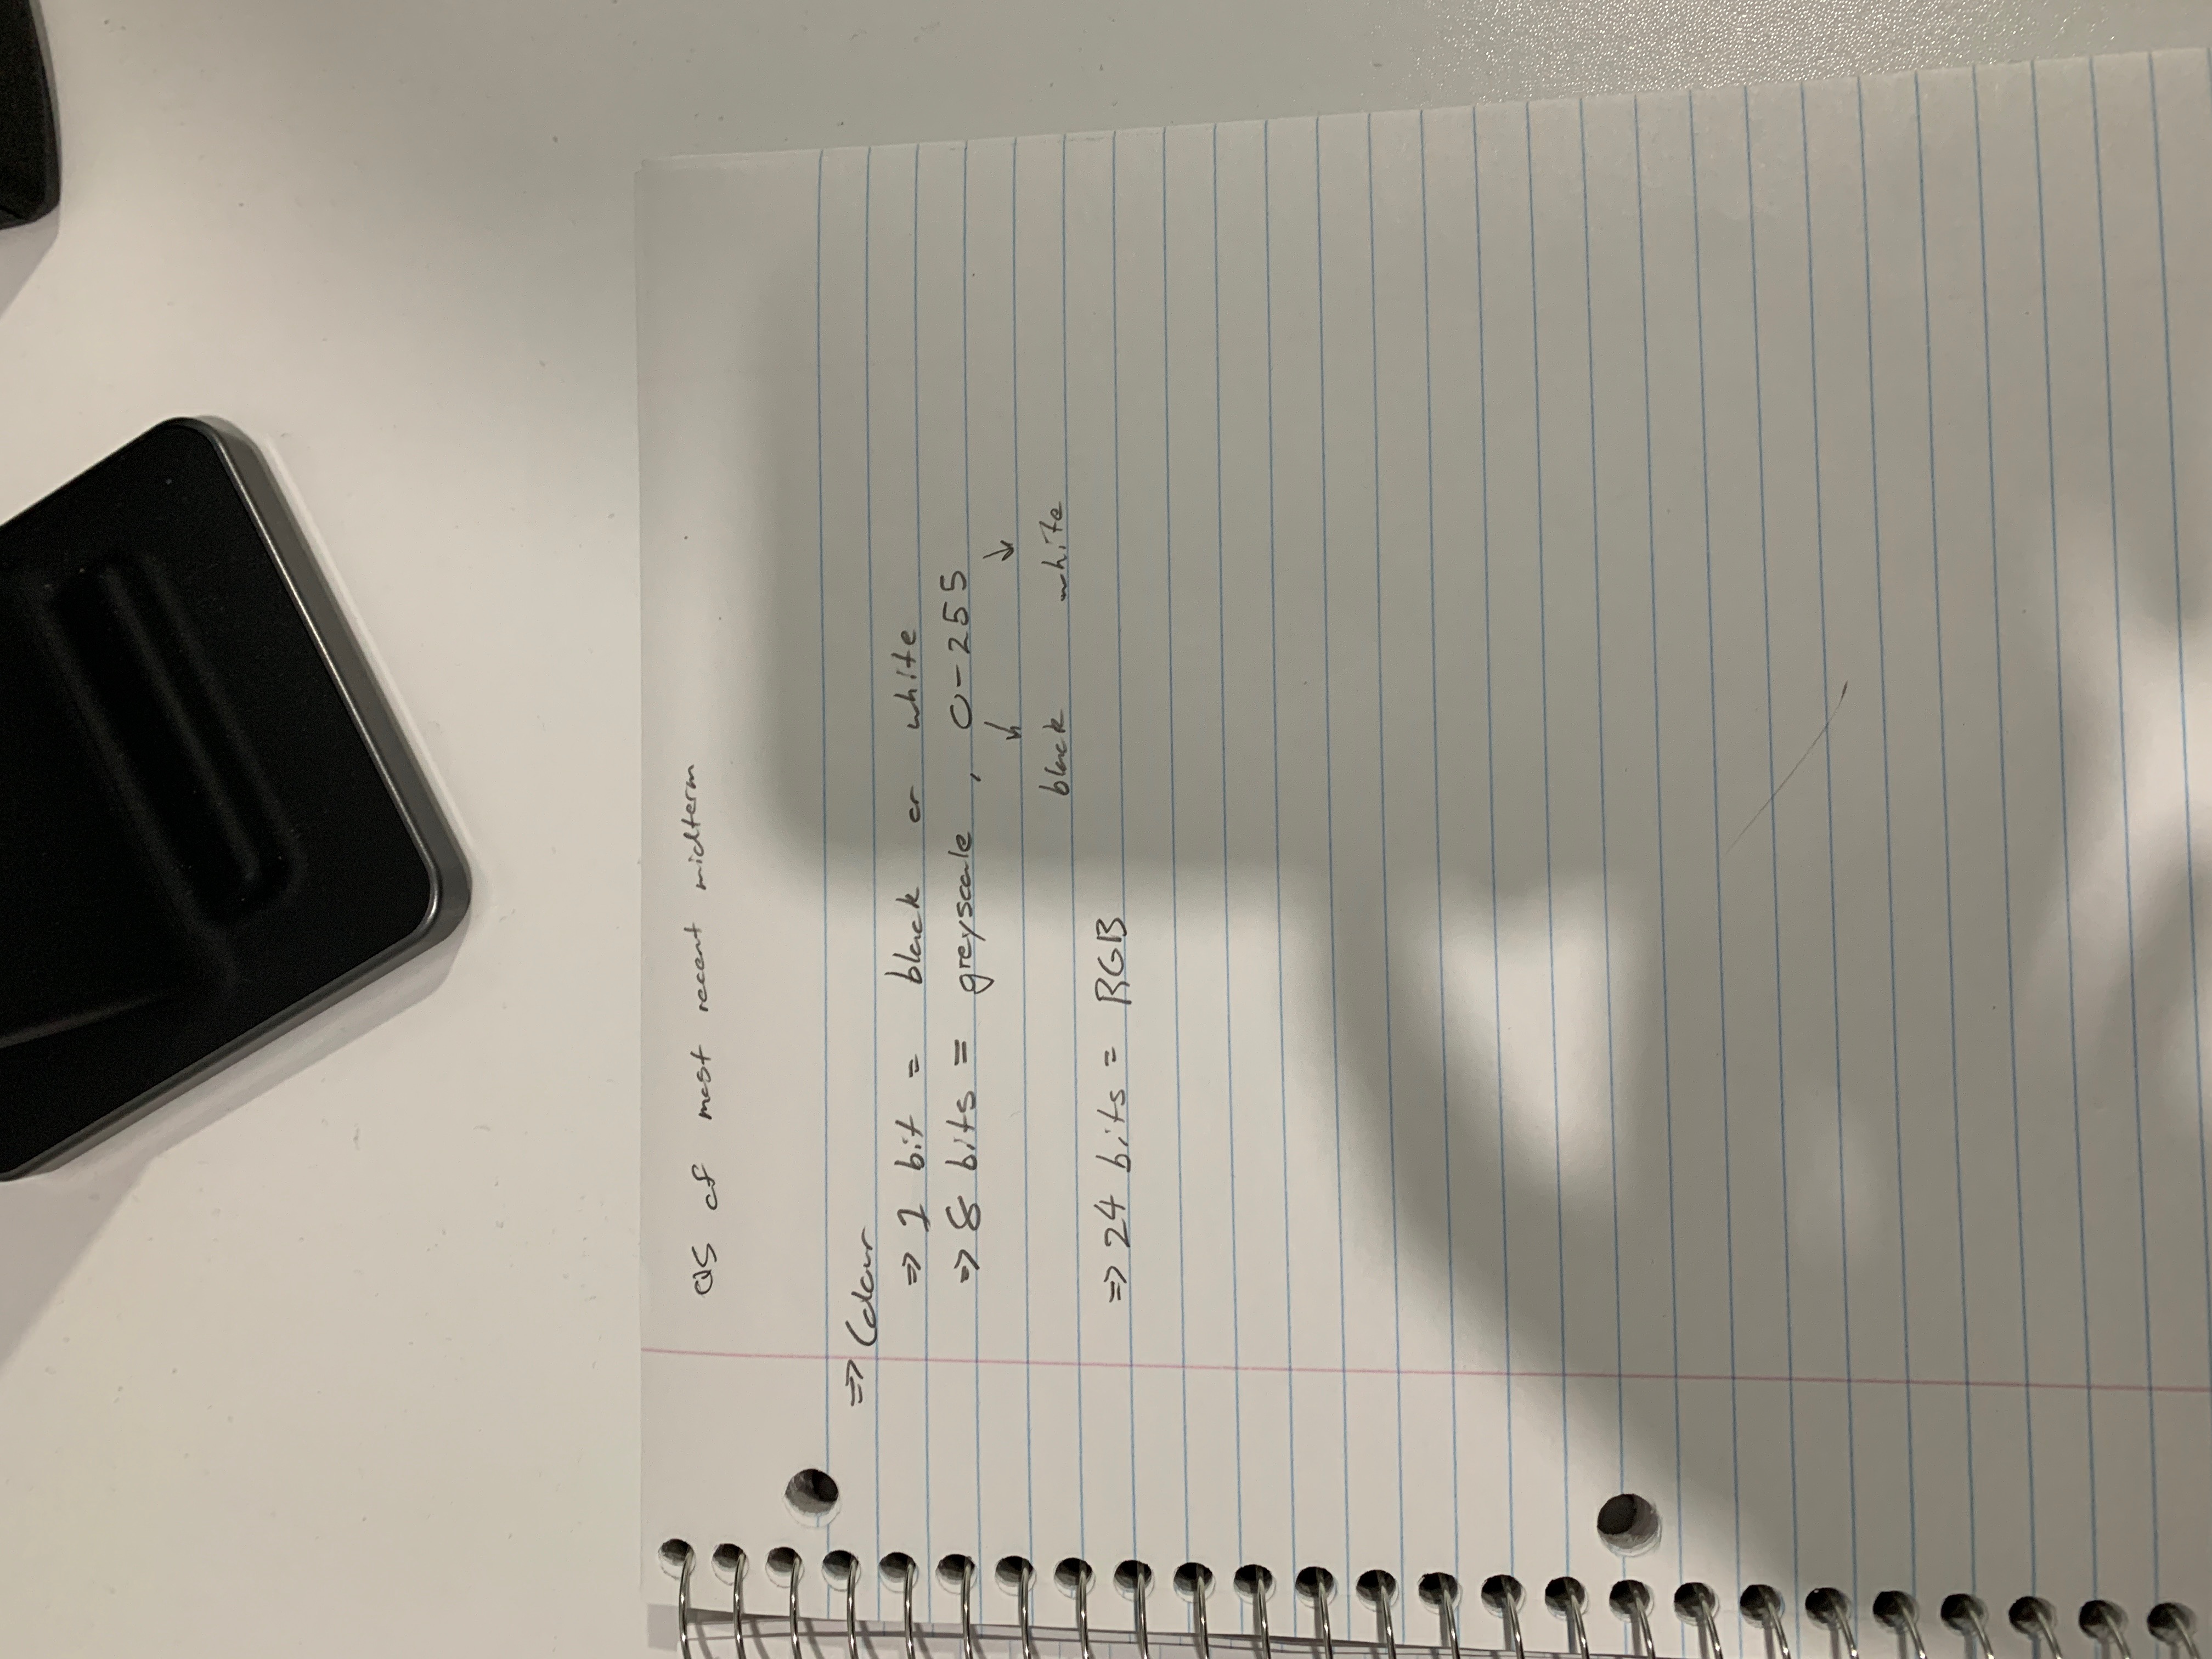 Q5 of most recent midterm
⇒ Colour
⇒ 1 bit = black or white
⇒ 8 bits = greyscale , 0-255
↓ ↓
black white
⇒ 24 bits = RGB